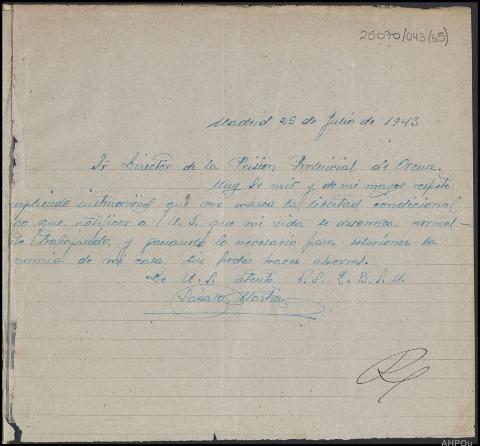 25070/043(65)
Madrid 25 de Julio de 1943
Sr Director de la Prisión Provincial de
Muy Sr mio y de mi mayor respeto:
upliendo instrucciones que me marca la libertad condicional
go que notificar a U.S. que mi vida se desarrolla normal-
te trabajando, y ganando lo necesario para solucionar la
nomia de mi casa sin poder hacer ahorros.
De U.S. atento S.S. Q. B. S. M.
Lázaro Martín
AHPOu